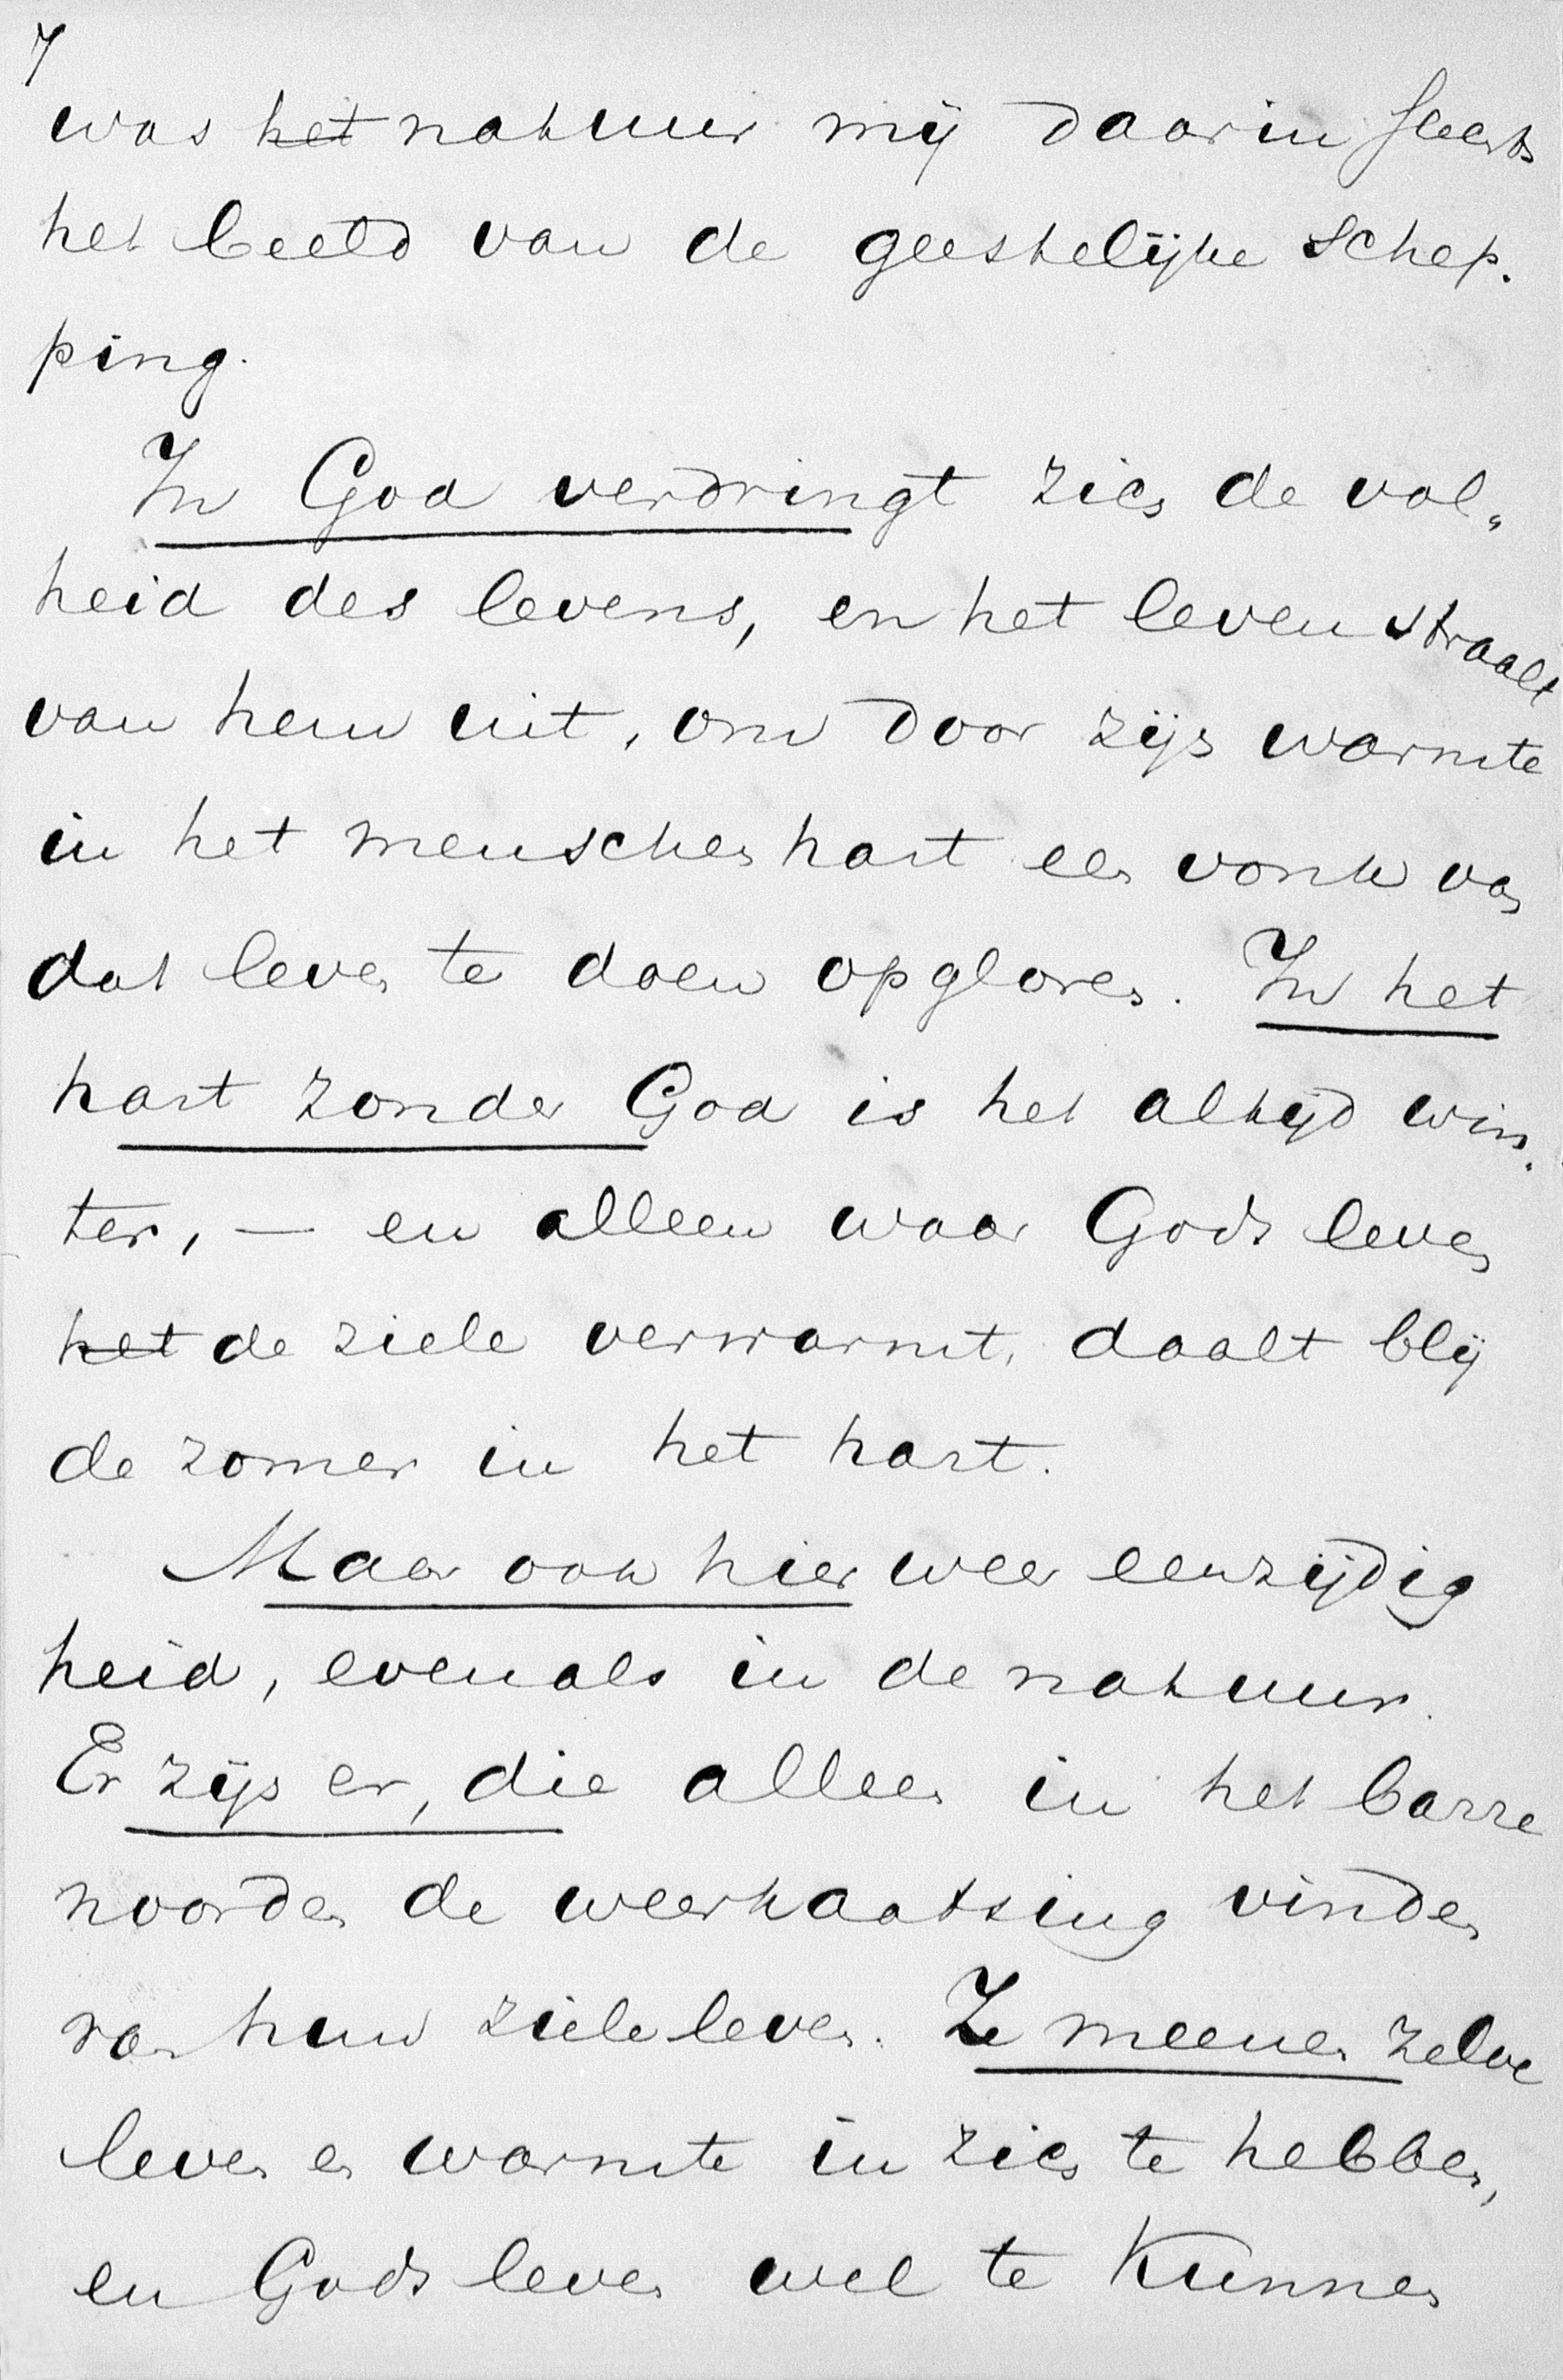 7
was het natuur mij daarin slechts
het beeld van de geestelijke schep-
ping.
In God verdringt zich de vol-
heid des levens, en het leven straalt
van hem uit, om door zijn warmte
in het menschenhart een vonk van
dat leven te doen opgloren. In het
hart zonder God is het altijd win-
ter, — en alleen waar Gods leven
het de ziele verwarmt, daalt blij
de zomer in het hart.
Maar ook hier weer eenzijdig
heid, evenals in de natuur.
Er zijn er, die alleen in het barre
noorden de weerkaatsing vinden
van hun zieleleven. Ze meenen zelve
leven en warmte in zich te hebben,
en Gods leven wel te kunnen